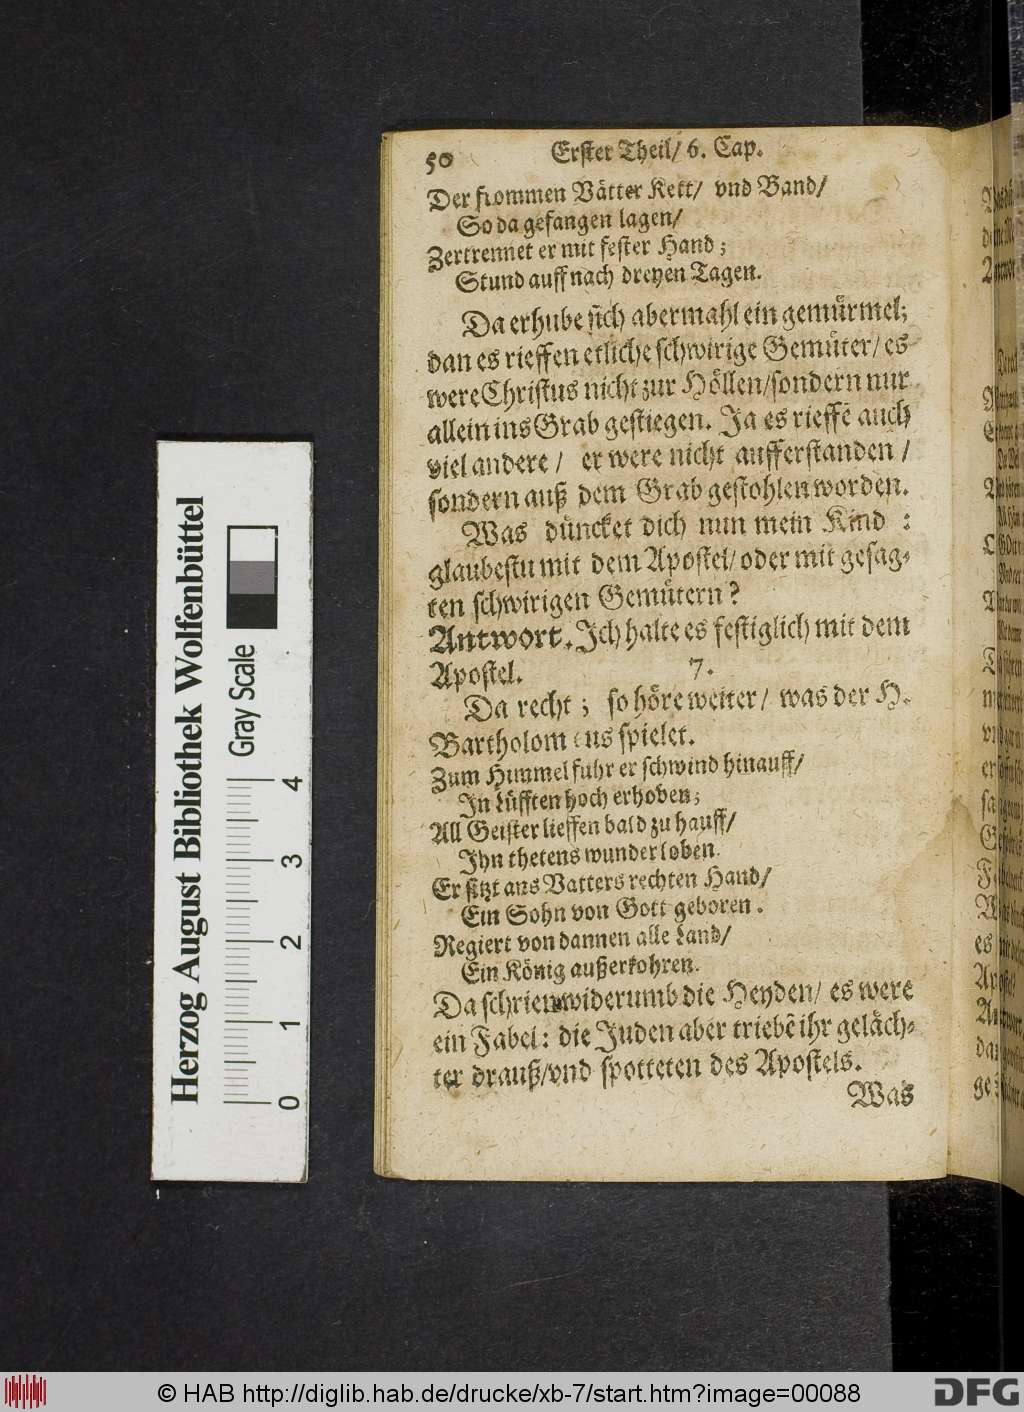 50 Erster Theil/ 6. Cap.
Der frommen Vätter Kett/ vnd Band/
So da gefangen lagen/
Zertrennet er mit fester Hand;
Stund auff nach dreyen Tagen.
Da erhube sich abermahl ein gemürmel;
dan es rieffen etliche schwirige Gemüter/ es
were Christus nicht zur Höllen/ sondern nur
allein ins Grab gestiegen. Ja es rieffē auch
viel andere / er were nicht aufferstanden /
sondern auß dem Grab gestohlen worden.
Was düncket dich nun mein Kind :
glaubestu mit dem Apostel/ oder mit gesag-
ten schwirigen Gemütern?
Antwort. Ich halte es festiglich mit dem
Apostel. 7.
Da recht ; so höre weiter/ was der H.
Bartholomeus spielet.
Zum Himmel fuhr er schwind hinauff/
In lüfften hoch erhoben;
All Geister lieffen bald zu hauff/
Ihn thetens wunder loben.
Er sitzt ans Vatters rechten Hand/
Ein Sohn von Gott geboren.
Regiert von dannen alle Land/
Ein König außerkohren.
Da schrien widerumb die Heyden/ es were
ein Fabel: die Juden aber triebē ihr geläch-
ter drauß/ vnd spotteten des Apostels.
Was
Herzog August Bibliothek Wolfenbüttel
Gray Scale
0 1 2 3 4
© HAB http://diglib.hab.de/drucke/xb-7/start.htm?image=00088
DFG